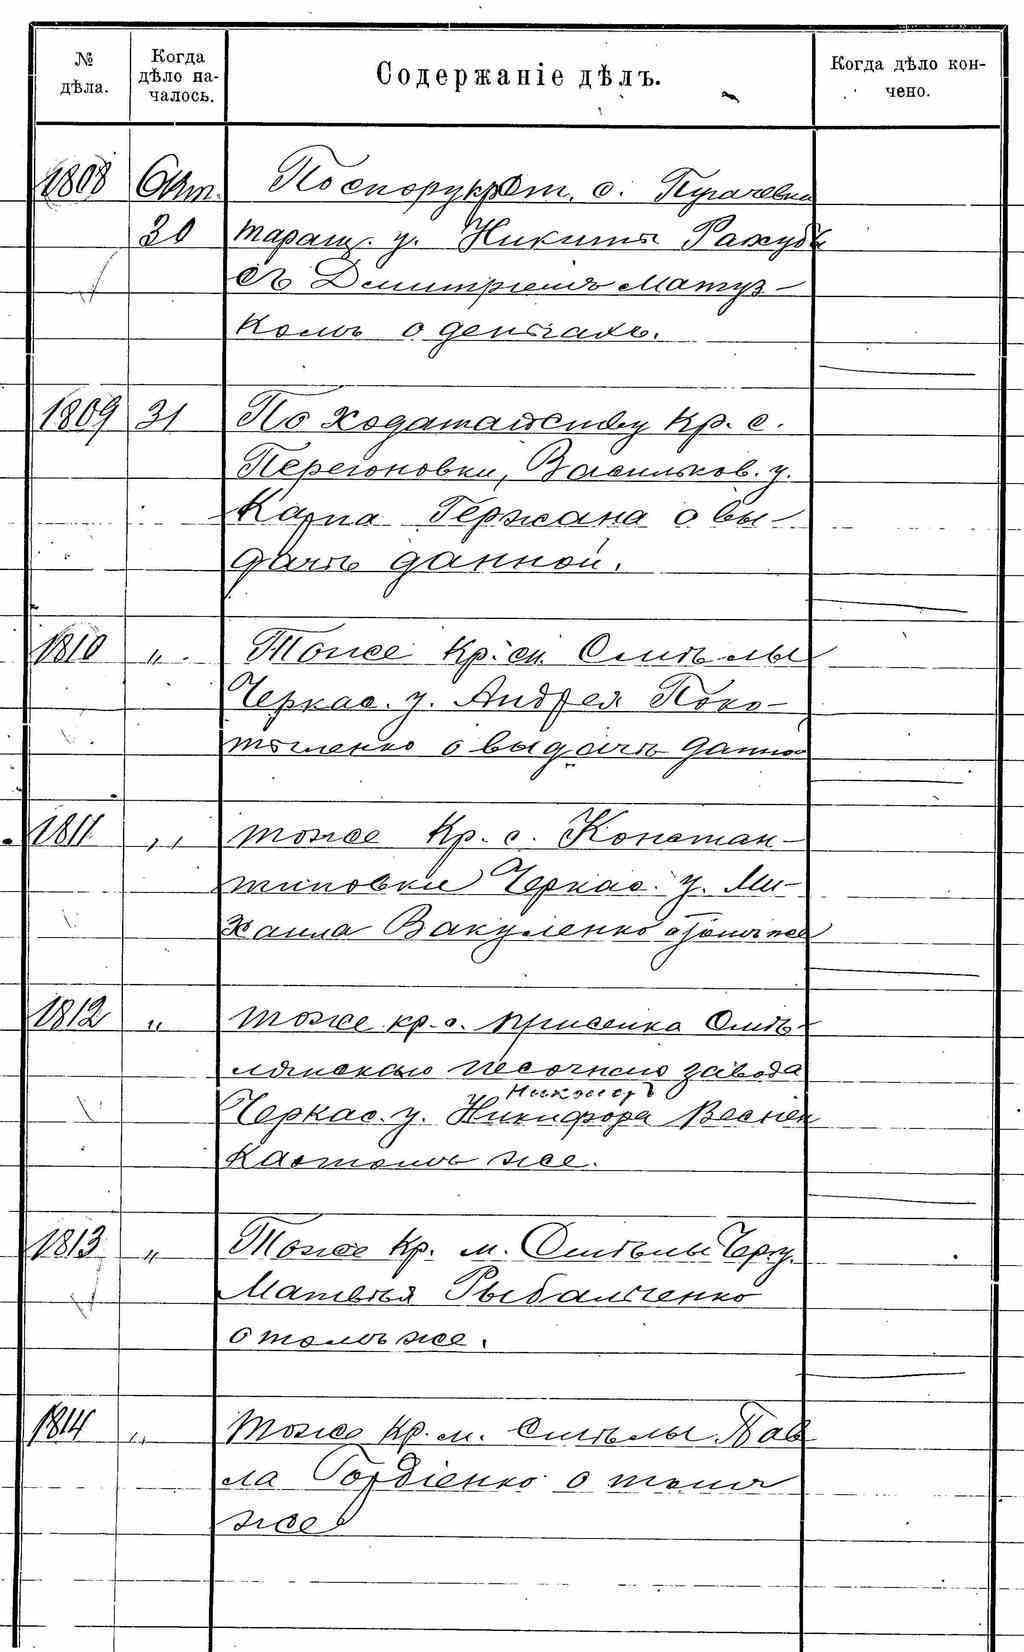 № дѣла.
Когда дѣло на-
чалось.
Содержаніе дѣлъ.
Когда дѣло кон-
чено.
1808 Окт. По спору кр с. Пугачевки
30 таращ. у. Никиты
съ Дмитріемъ Матуз-
комъ о деньгахъ.
1809 31 По ходатайству Кр. с.
Перегоновки, Васильков. у.
Карпа Гержана о вы-
дачѣ данной.
1810 „ Тоже Кр. Смѣлы
Черкас. у. Андрея Поко-
тыленко о выдачѣ данной
1811 „ тоже Кр. с. Констан-
тиновки Черкас. у. Ми-
хаила Вакуленко о томъ же
1812 „ тоже кр. с. присенка Смѣ-
лянскаго песочнаго завода
Черкас. у. Никифора
томъ же.
1813 „ Тоже Кр. м. Смѣлы Чер. у.
Матвѣя Рыбальченко
о томъ же.
1814 „ тоже Кр. м. Смѣлы Пав
ла Гордіенко о томъ
же